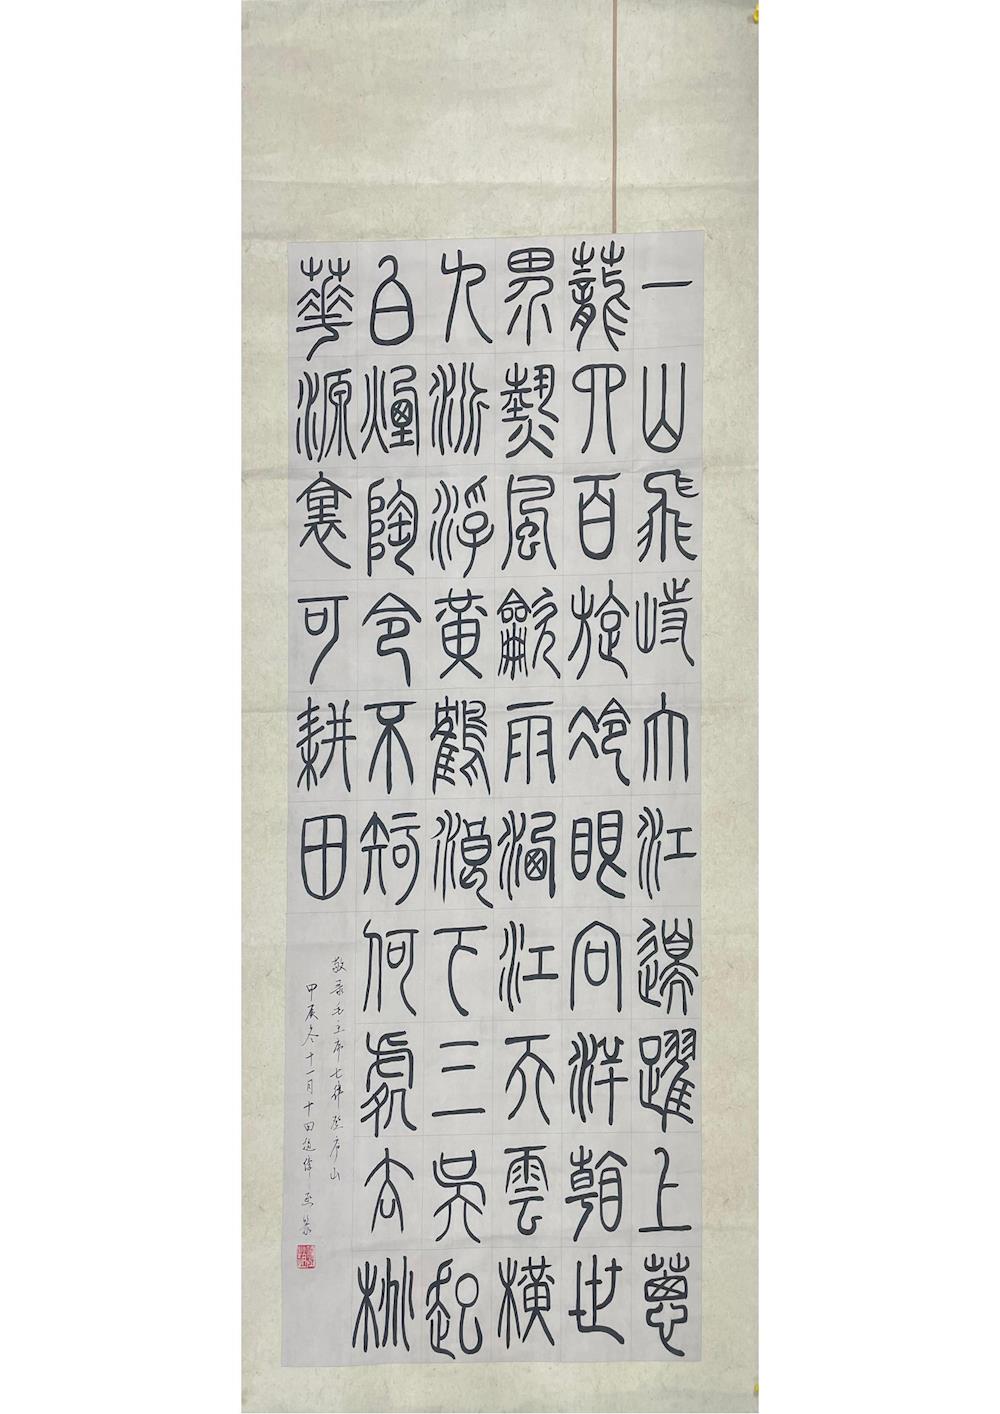 一山飛峙大江邊躍上蔥
蘢四百旋冷眼向洋看世
界熱風龡雨洒江天雲橫
九派浮黃鶴浪下三吳起
白煙陶令不知何處去桃
華源裏可耕田
敬录毛主席七律登庐山
甲辰冬十一月十田